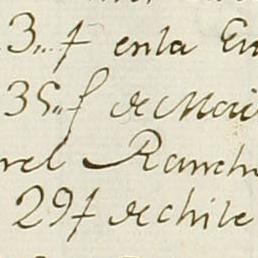 3...f enla En
35..f de Mai
rel Ranch
29f dechile